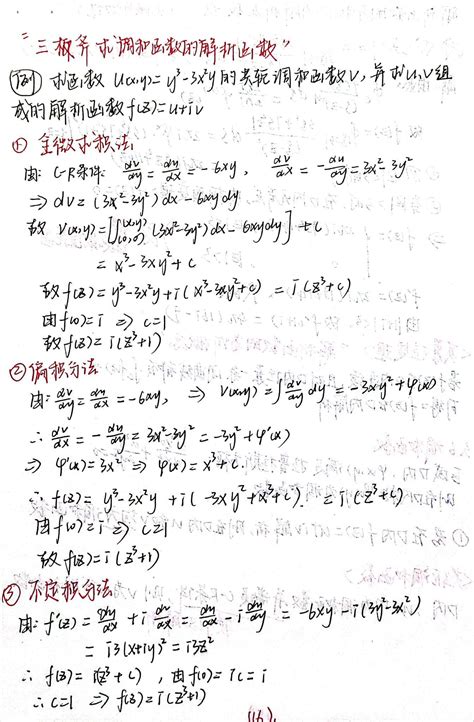 "三板斧求调和函数的解析函数"
例 求函数 u(x,y)=y³-3x²y的共轭调和函数v,并求u,v组
成的解析函数f(z)=u+iv
① 全微分积法
由: C-R条件: ∂v/∂y=∂u/∂x=-6xy, ∂v/∂x=-∂u/∂y=3x²-3y²
⇒ dv=(3x²-3y²)dx-6xydy
故 v(x,y)=[∫_(0,0)^(x,y) (3x²-3y²)dx-6xydy]+c
= x³-3xy²+c
故f(z)=y³-3x²y+i(x³-3xy²+c) = i(z³+c)
由f(0)=i ⇒ c=1
故f(z)=i(z³+1)
② 偏积分法
由: ∂v/∂y=∂u/∂x=-6xy, ⇒ v(x,y)=∫∂v/∂y dy=-3xy²+φ(x)
∴ ∂v/∂x=-∂u/∂y=3x²-3y²=-3y²+φ'(x)
⇒ φ'(x)=3x² ⇒ φ(x)=x³+c.
∴ f(z)=y³-3x²y+i(-3xy²+x³+c) = i(z³+c)
由f(0)=i ⇒ c=1
故f(z)=i(z³+1)
③ 不定积分法
由: f'(z)=∂u/∂x+i∂v/∂x=∂u/∂x-i∂u/∂y=-6xy-i(3y²-3x²)
= i3(x+iy)²=i3z²
∴ f(z)=i(z³+c), 由f(0)=ic=i
∴ c=1 ⇒ f(z)=i(z³+1)
(16).